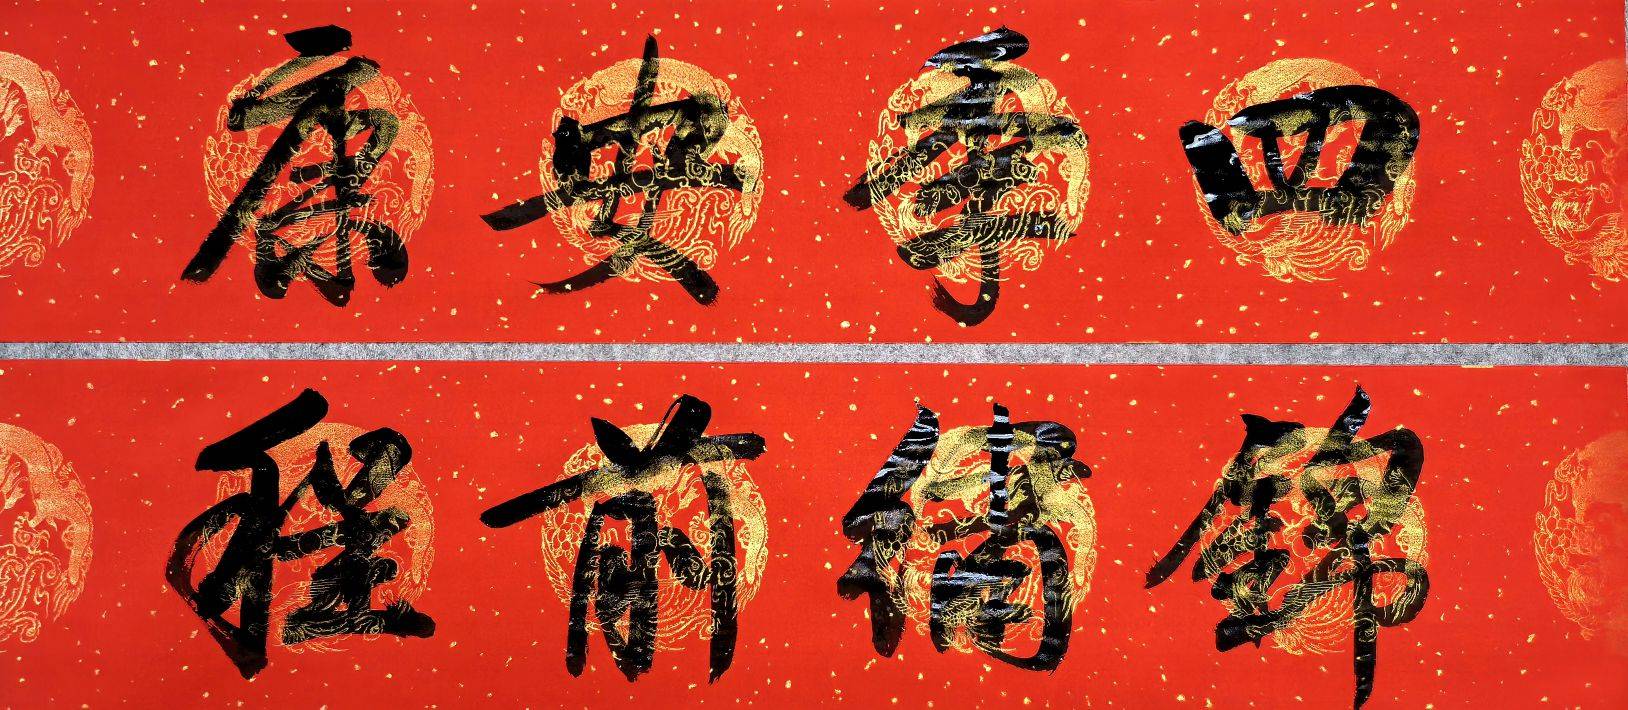 四季安康
錦繡前程